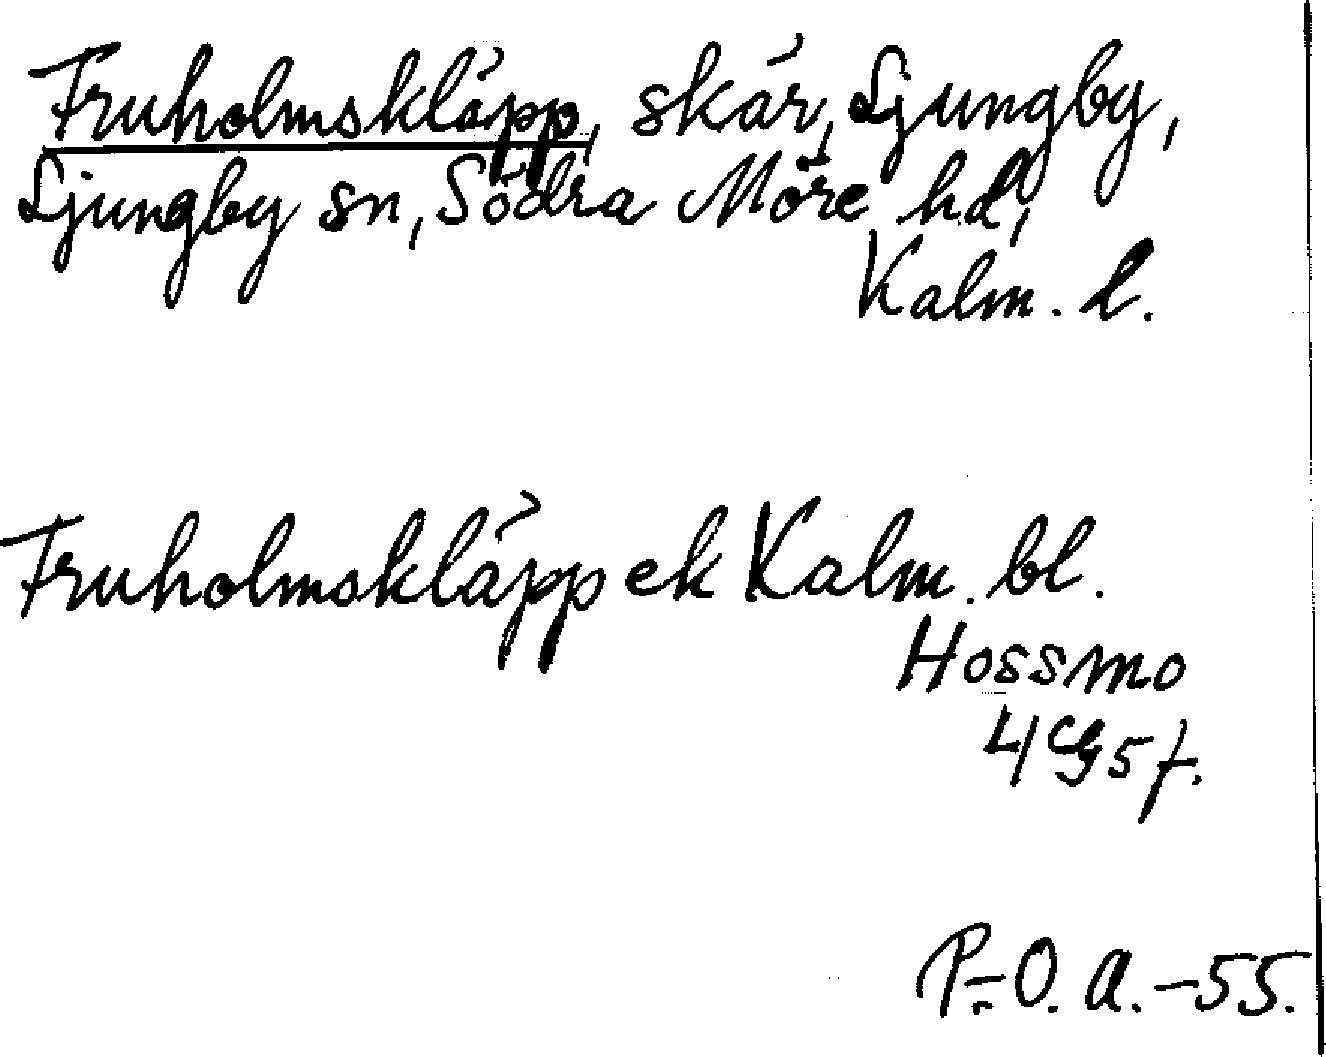 Fruholmskläpp, skär, Ljungby,
Ljungby sn, Södra Möre hd,
Kalm. l.
Fruholmskläpp ek Kalm. bl.
Hossmo
4G5f.
P.-O. A. -55.